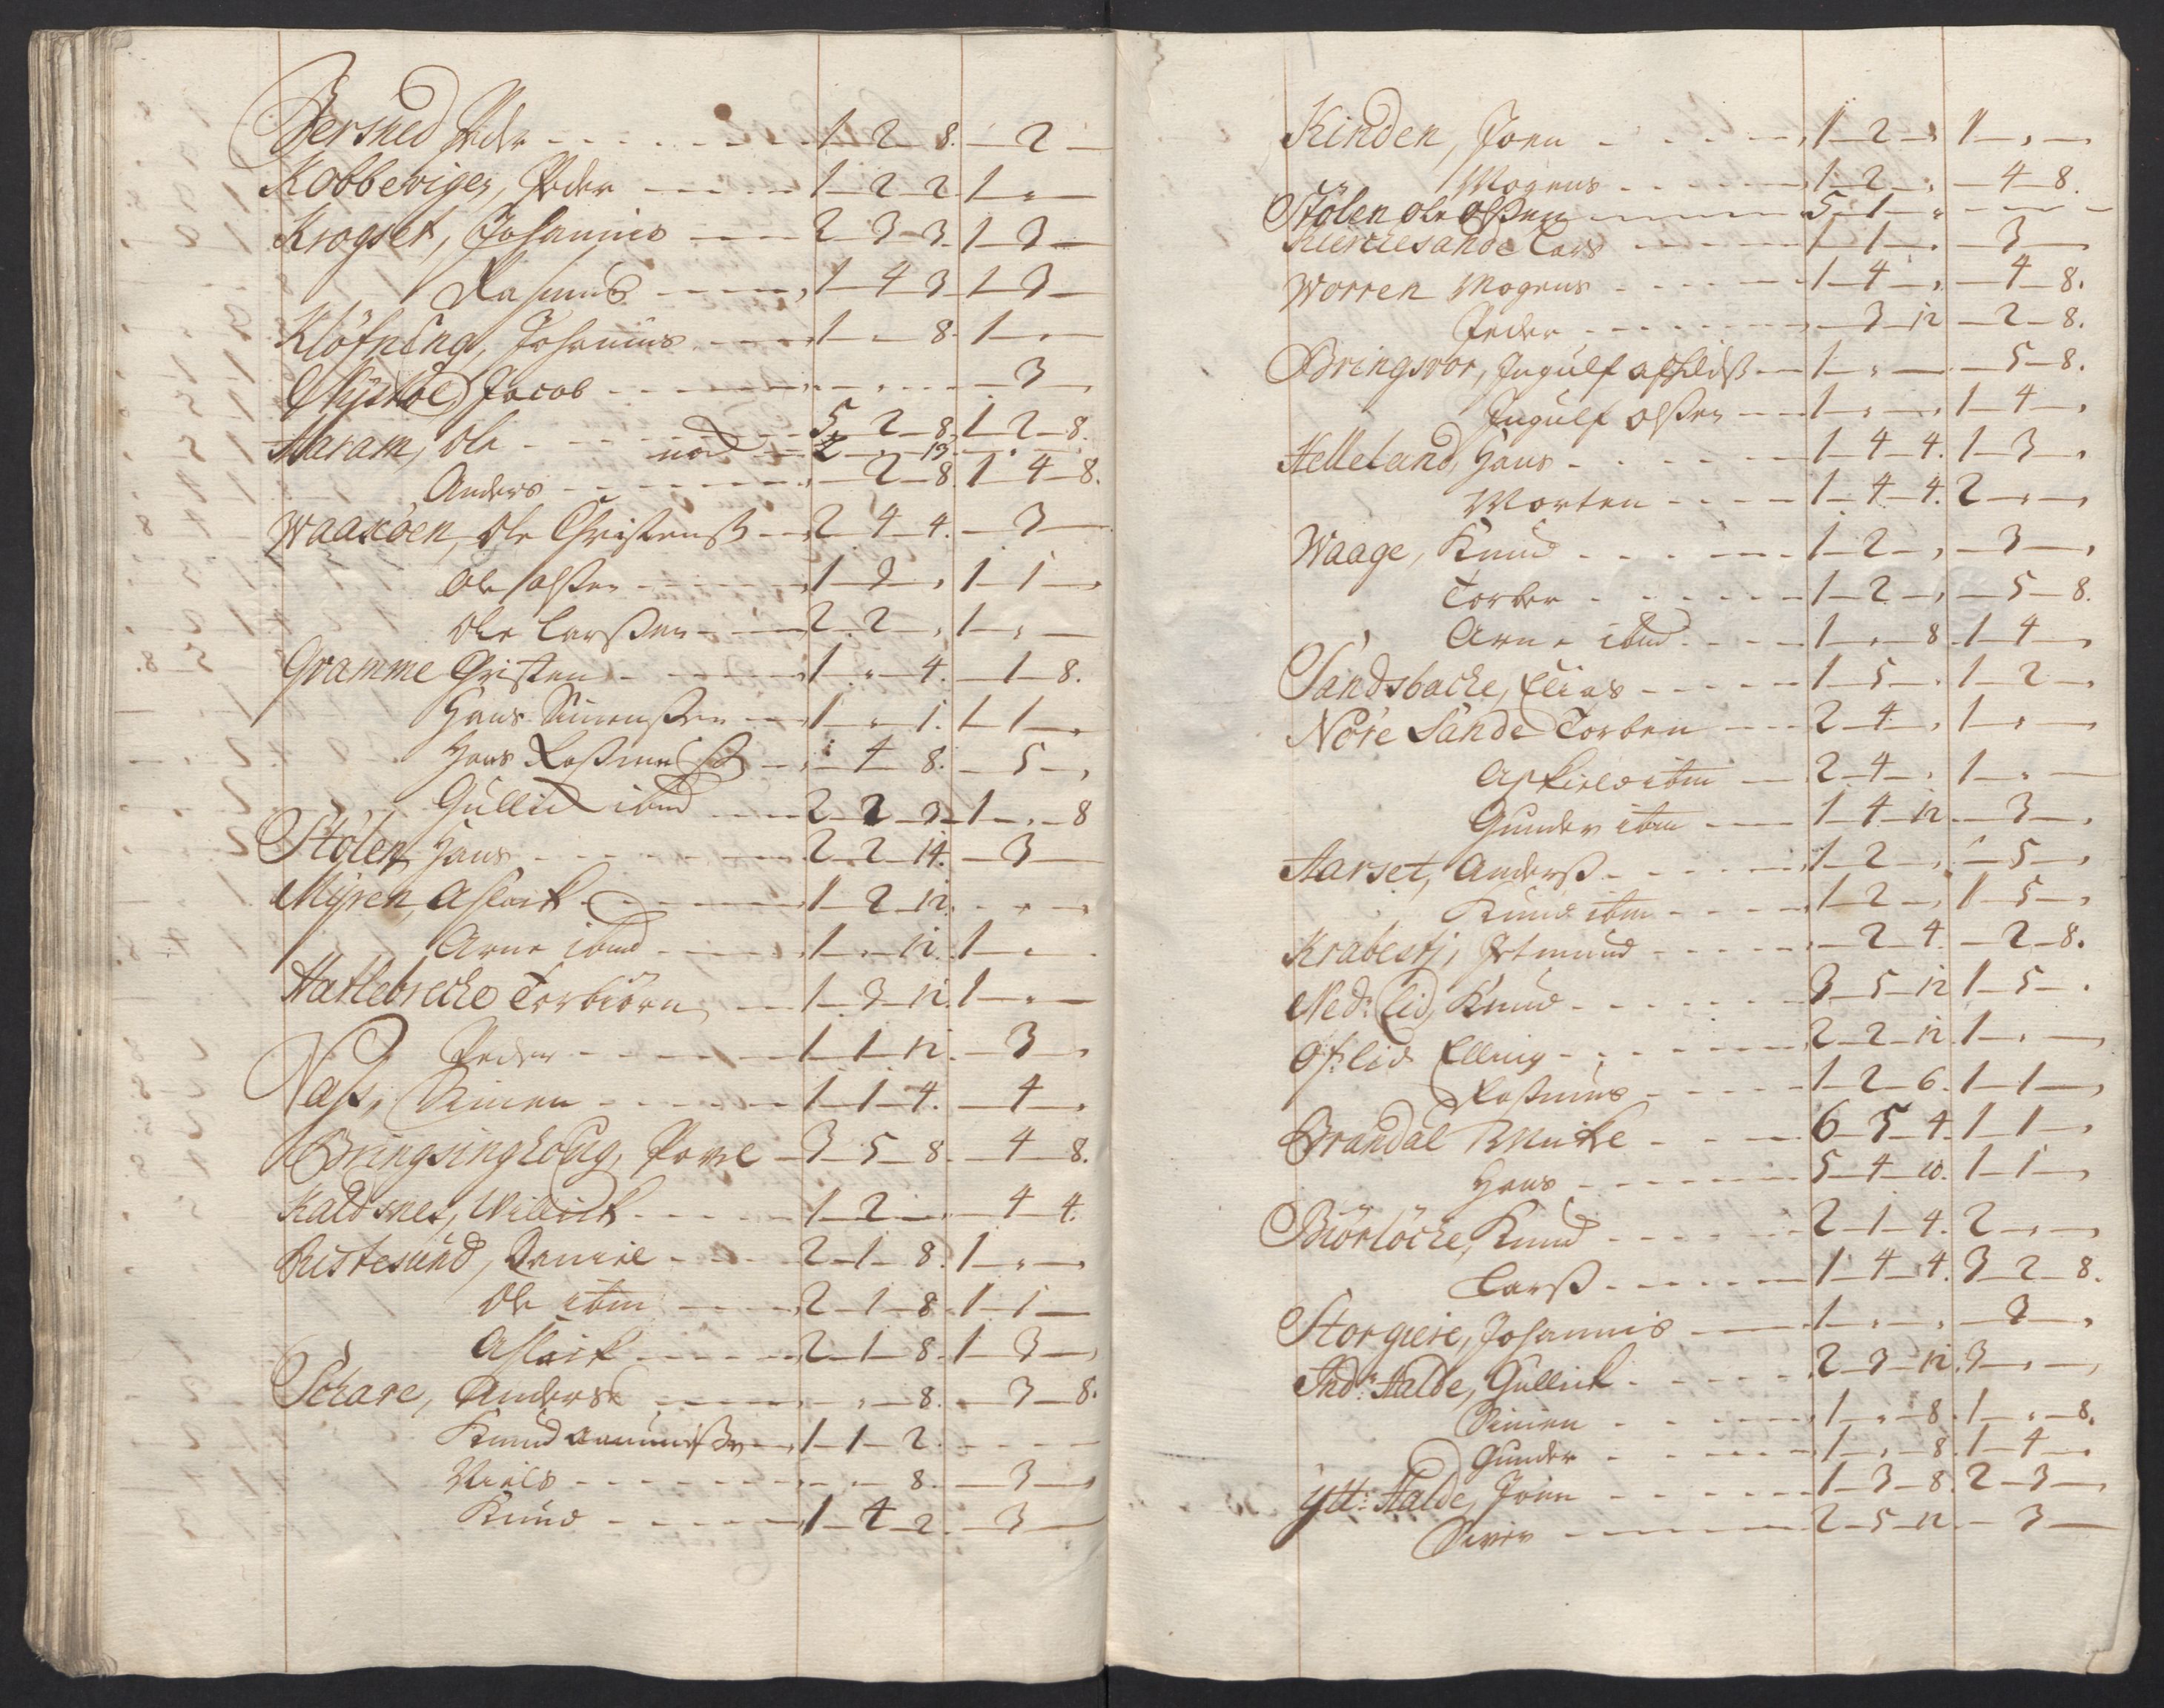 Berstued Peder - - - - 1 - 2 - 8. - 2 -
Kobbeviger, Peder - - - 1 - 2 - 2 1 - „ -
Krogset, Johannis - - 2 - 3 - 3. 1 - 3 -
Rasmus - - - 1 - 4 3 1 - 3 -
Klöfning, Johannis - - 1 - - 8. 1 - „ -
Myskoe Jacob - - - - „ - - 3 -
Haram, Ole - - - 5 - 2 - 8. 1 - 2 - 8.
nod - 2 - 13.
Anders - - - - 2 - 8. 1 - 4 - 8.
Waaxöen, Ole Christenß - 2 - 4 - 4. - 3 -
Ole olßen - - - 1 - 3 - „ 1 - 1 - „
Ole Larßen - - - 2 - 2 - „ 1 - „ -
Gramme Christen - - - 1 - „ - 4. - 1 - 8.
Hans Simenßen - - 1 - „ - 1. 1 - 1 - „
Hans Raßmusß - - 4 - 8. - 5 - „
Gullich ibmd - - 2 - 2 - 3 1 - „ - 8
Stölen Hans - - - - 2 - 2 - 14. - 3 -
Myren, Aslack - - - 1 - 2 - 12. - „ -
Arne ibmd - - - 1 - „ - 12. 1 - „ -
Hatlebrecke Torbiörn - - 1 - 3 - 12. 1 - „ -
Peder - - - - 1 - 1 - 12. - 3 - „
Næss, Simen - - - - 1 - 1 - 4. - 4 - „
Bringsinghoug, Povel - 3 - 5 - 8. - 4 - 8.
Kaldsnes, Willich - - - 1 - 2 - - 4 - 4.
Ristesund, Daniel - - 2 - 1 - 8. 1 - „ - „
Ole ibm - - - 2 - 1 - 8. 1 - 1 -
Aslack - - - 2 - 1 - 8. 1 - 3 - „
Schare, Anders - - - - „ - 8. - 3 - 8.
Knud - - 1 - 1 - 2. - - -
Niels - - - - - 8. - 3 - „
Knud - - - - 1 - 4 - 2. - 3 -
Kinden, Joen - - - - 1 - 2 - „ 1 - „ -
Mogens - - - 1 - 2 - „ - 4 - 8.
Stölen ole olßen - - 5 - 1 - „ - - -
Kiercesande Lars - - - 1 - 1 - „ - 3 -
Worren Mogens - - - - 1 - 4 - „ - 4 - 8.
Peder - - - - - 3 - 12 - 2 - 8.
Bringsvor, Ingulf - 1 - „ - - 5 - 8.
Ingulf olßen - - 1 - „ - „ 1 - 4 - „
Helleland, Hans - - - - 1 - 4 - 4. 1 - 3 - „
Morten - - - 1 - 4 - 4. 2 - „ - „
Waage, Knud - - - - 1 - 2 - „ - 3 - „
Torber - - - - 1 - 2 - „ - 5 - 8.
Arne ibmd - - - 1 - „ - 8. 1 - 4 - „
Sandsbacke, Elias - - - 1 - 5 - „ 1 - 2 - „
Nöre Sande Torben - - 2 - 4 - „ 1 - „ -
Aschild ibm - - 2 - 4 - „ 1 - „ -
Gunder ibm - - 1 - 4 - 12. - 3 - „
Aarset, Anderß - - - - 1 - 2 - „ - 5 - „
Knud ibm - - - 1 - 2 - „ 1 - 5 - „
Krabestj, - - - - 2 - 4. - 2 - 8.
Ned: Lid, Knud - - - - 3 - 5 - 12 1 - 5 - „
Öf: Lid Elling - - - - 2 - 2 - 12 1 - „ -
Raßmus - - - 1 - 2 - 6. 1 - 1 - „
Brandal - - - 6 - 5 - 4. 1 - 1 - „
Hans - - - - 5 - 4 - 10. 1 - 1 - „
Biörlöcke, Knud - - - - 2 - 1 - 4. 2 - „ - „
Larß - - - - 1 - 4 - 4. 3 - 2 - 8.
Storgieie, Johannis - - 1 - „ - „ - 3 - „
Ind: Halde, Gullich - - - 2 - 3 - 12. 3 - „ - „
Simen - - - - 1 - „ - 8. 1 - „ - 8.
Gunder - - - 1 - „ - 8. 1 - 4 - „
Ytt: Halde, Joen - - - - 1 - 3 - 8. 2 - 3 - „
Siver - - - - 2 - 5 - 12. - 3 -